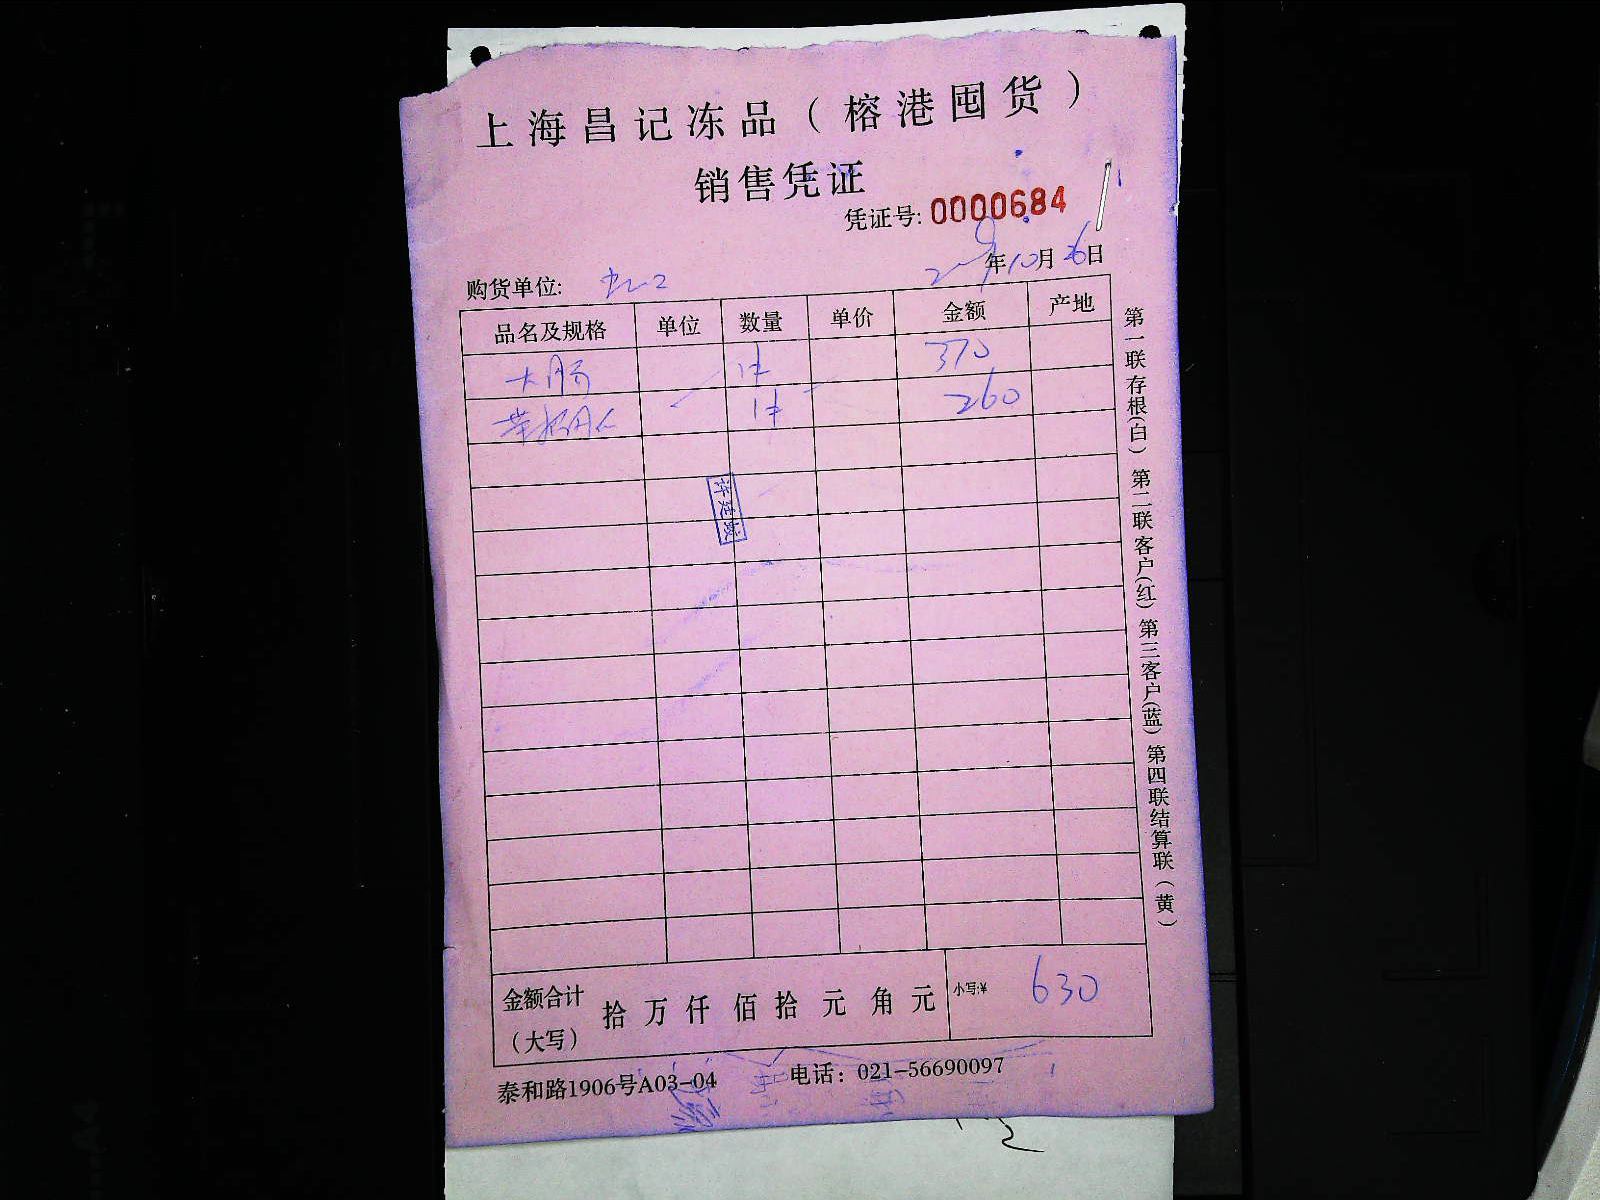 上海昌记冻品（榕港囤货）
销售凭证
凭证号: 0000684
年10月26日
购货单位:
品名及规格 单位 数量 单价 金额 产地
大肠 1件 370
1件 260
许廷城
金额合计（大写） 拾 万 仟 佰 拾 元 角 元 小写:¥ 630
泰和路1906号A03-04 电话：021-56690097
第一联存根(白) 第二联客户(红) 第三客户(蓝) 第四联结算联(黄)